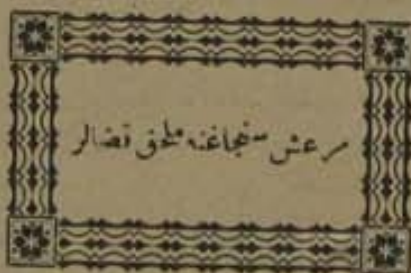 مرعش سنجاغنه ملحق قضالر